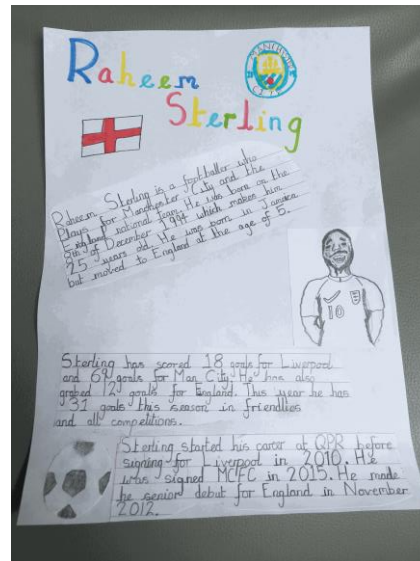 Raheem
Sterling
MANCHESTER
CITY
Raheem Sterling is a footballer who
plays for Manchester City and the
England national team. He was born on the
8th of December 1994 which makes him
25 years old. He was born in Jamaica
but moved to England at the age of 5.
10
Sterling has scored 18 goals for Liverpool
and 69 goals for Man City. He has also
grabed 12 goals for England. This year he has
31 goals this season in friendlies
and all competitions.
Sterling started his career at QPR before
signing for Liverpool in 2010. He
was signed MCFC in 2015. He made
he senior debut for England in November
2012.